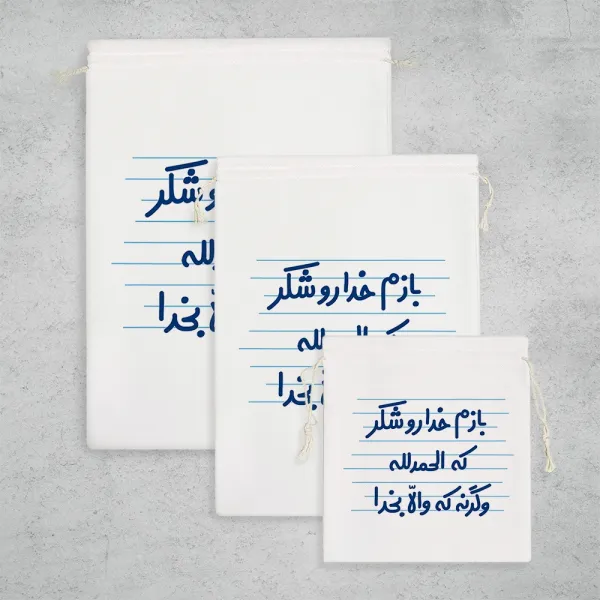 وشکر
لله
لّا بخدا
بازم خدارو شکر
که الحمدلله
بخدا
بازم خدارو شکر
که الحمدلله
وگرنه که والّا بخدا